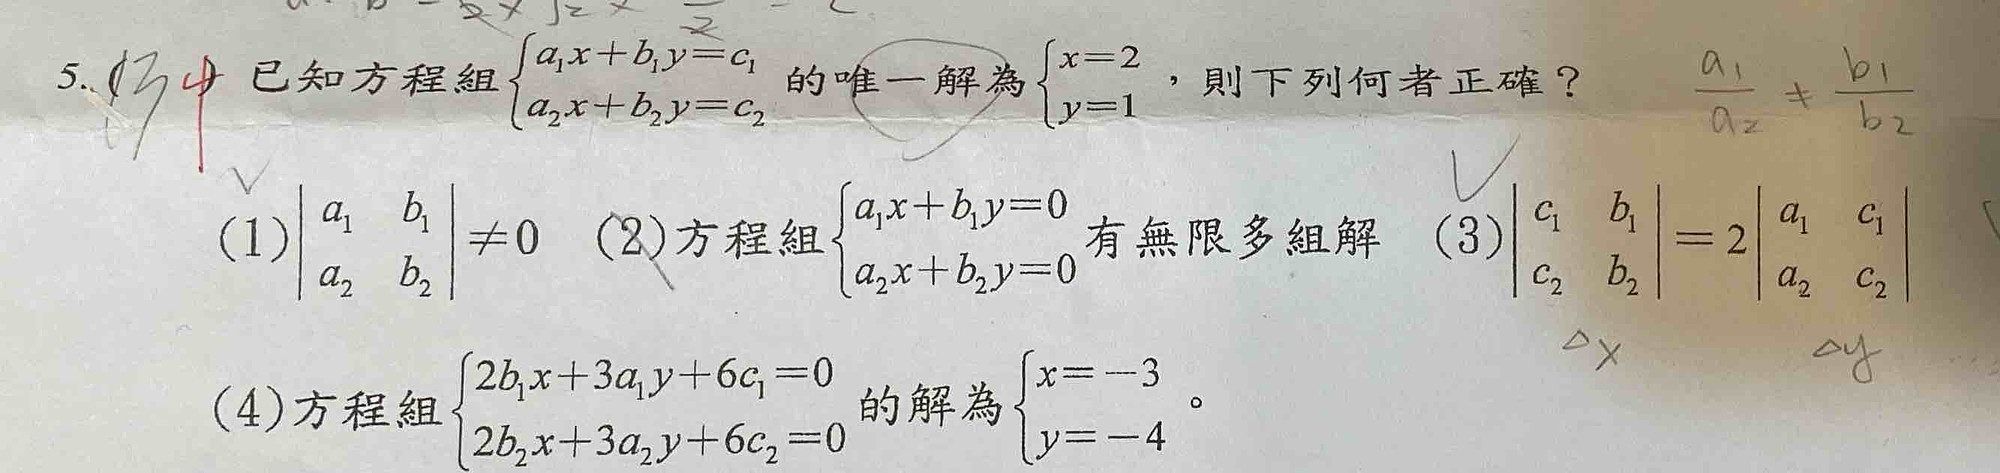 5. 134 已知方程組 { a₁x+b₁y=c₁ , a₂x+b₂y=c₂ 的唯一解為 { x=2 , y=1 ，則下列何者正確？ a₁/a₂ ≠ b₁/b₂
(1) | a₁ b₁ ; a₂ b₂ | ≠0 (2)方程組 { a₁x+b₁y=0 , a₂x+b₂y=0 有無限多組解 (3) | c₁ b₁ ; c₂ b₂ | =2 | a₁ c₁ ; a₂ c₂ |
△x △y
(4)方程組 { 2b₁x+3a₁y+6c₁=0 , 2b₂x+3a₂y+6c₂=0 的解為 { x=-3 , y=-4 。